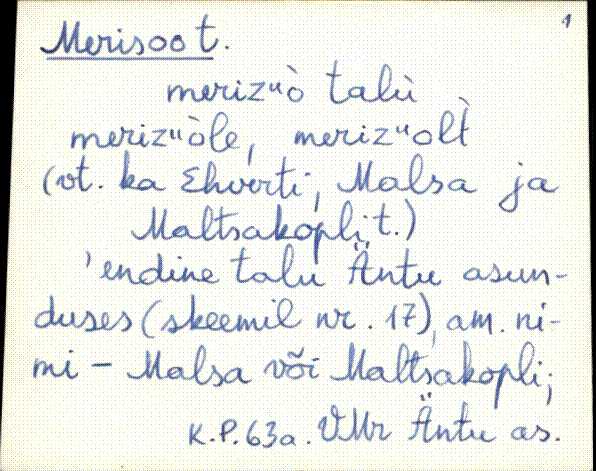 1
Merisoo t.
merizᵘò talù
merizᵘòle, merizᵘolt̀
(vt. ka Ehverti, Malsa ja
Maltsakopli t.)
'endine talu Äntu asun-
duses (skeemil nr. 17), am. ni-
mi - Malsa või Maltsakopli;
K.P. 63a. VMr Äntu as.